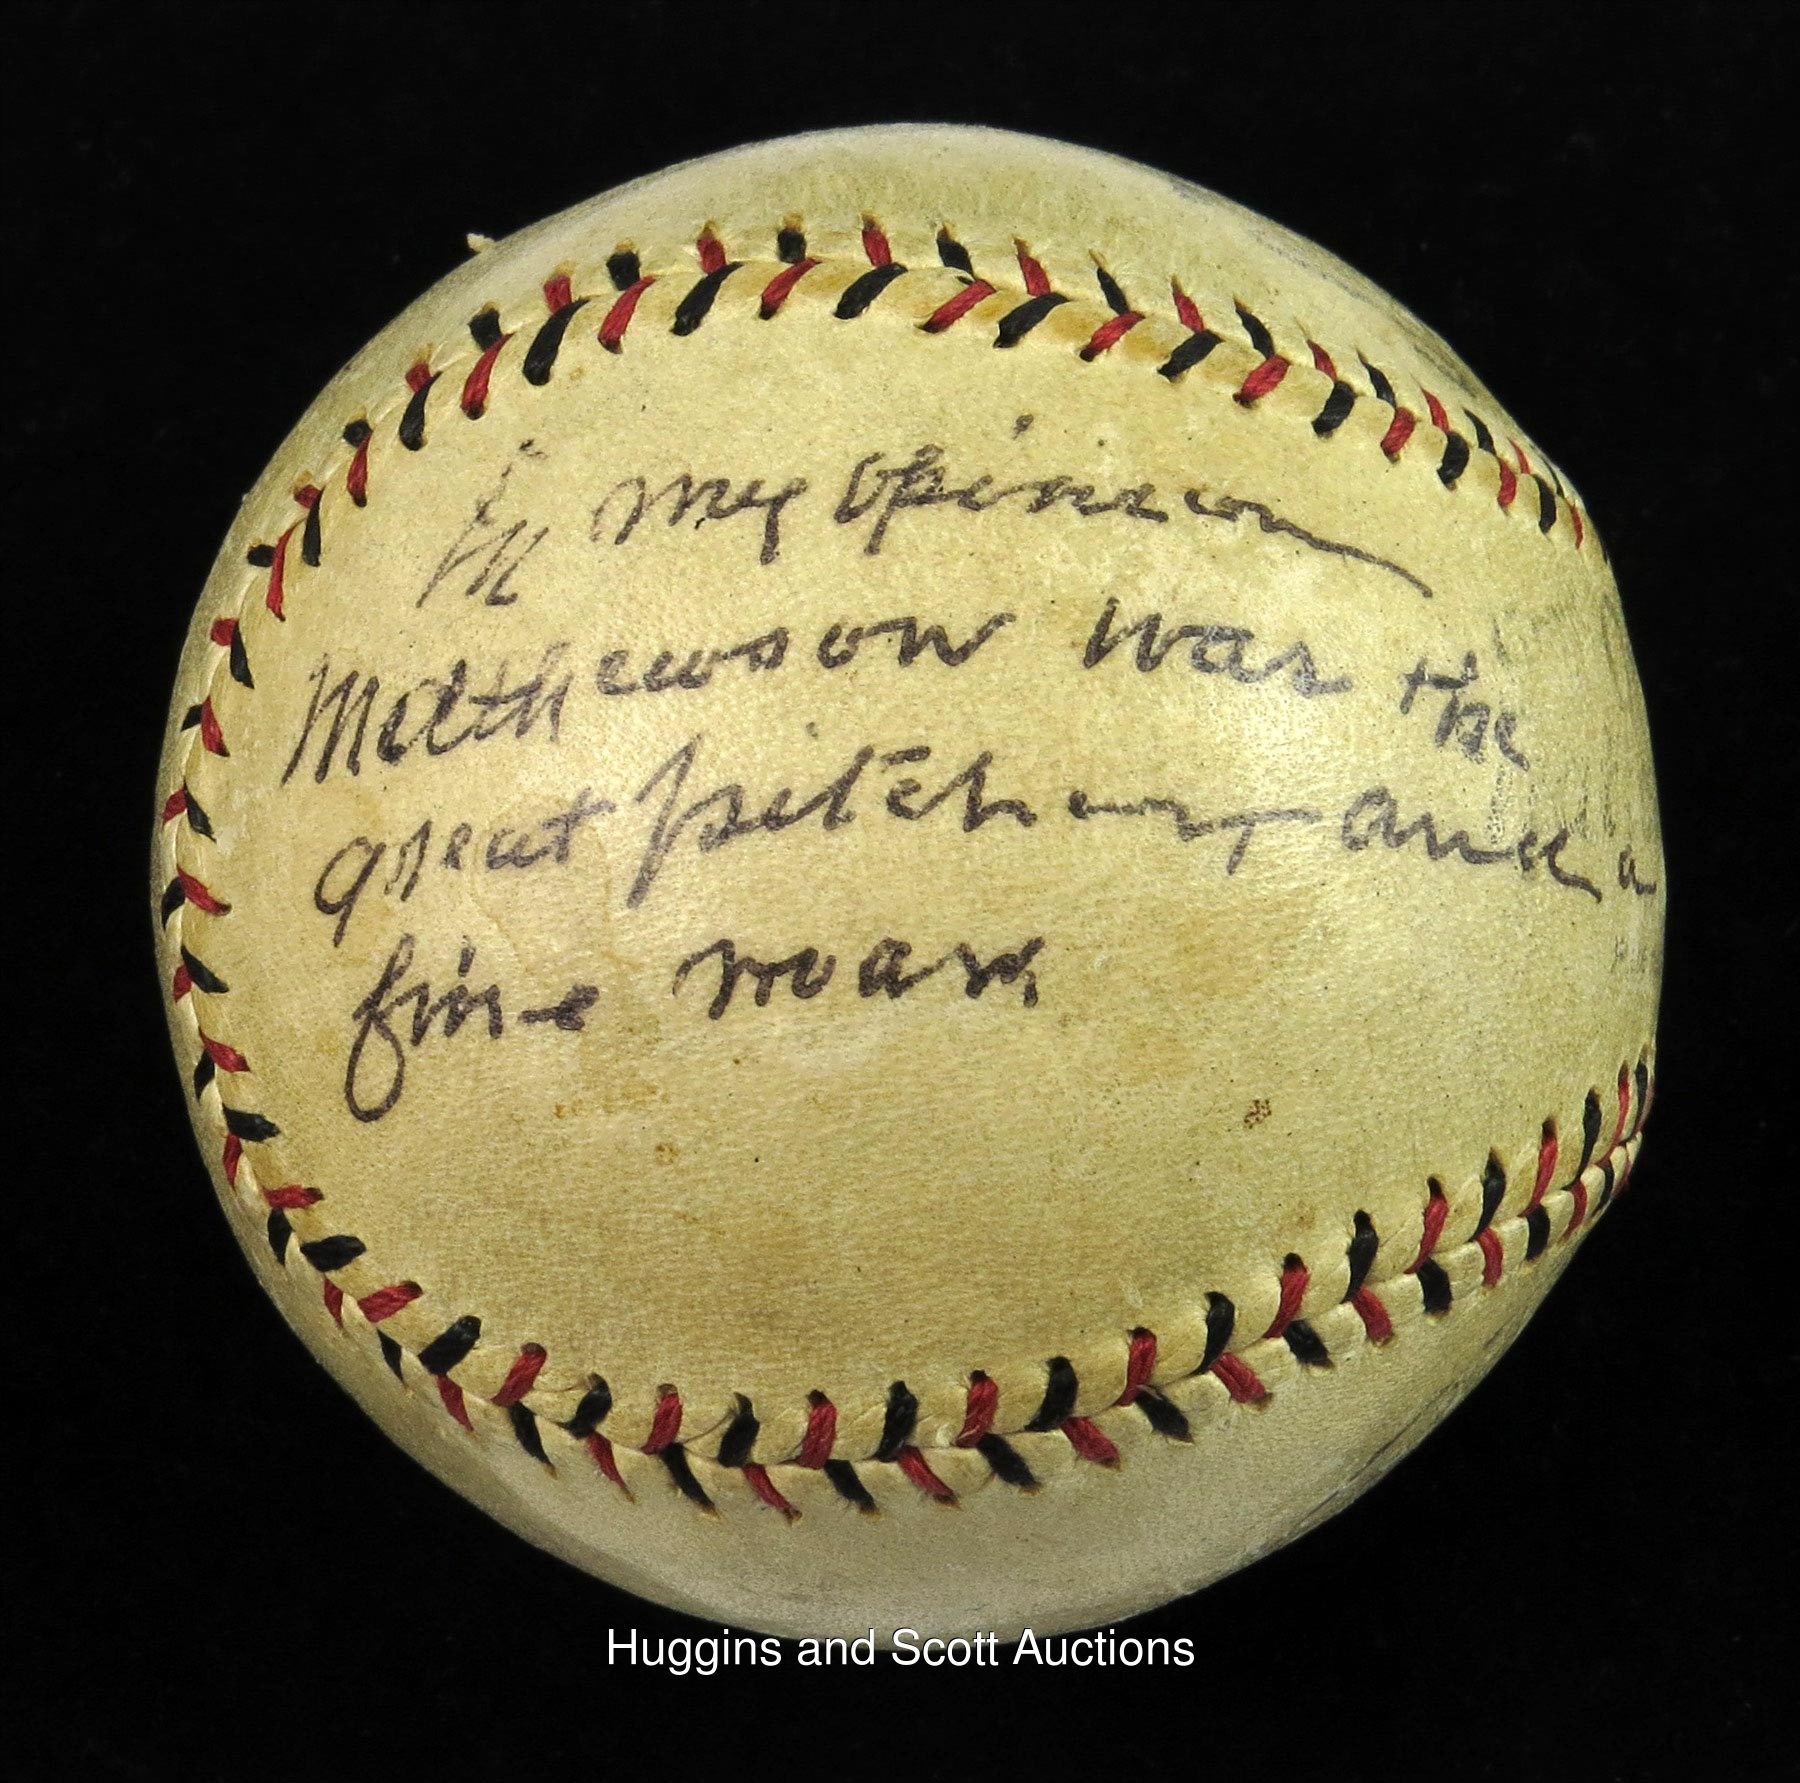 In my opinion
Mathewson was the
great pitcher, and a
fine man
Huggins and Scott Auctions